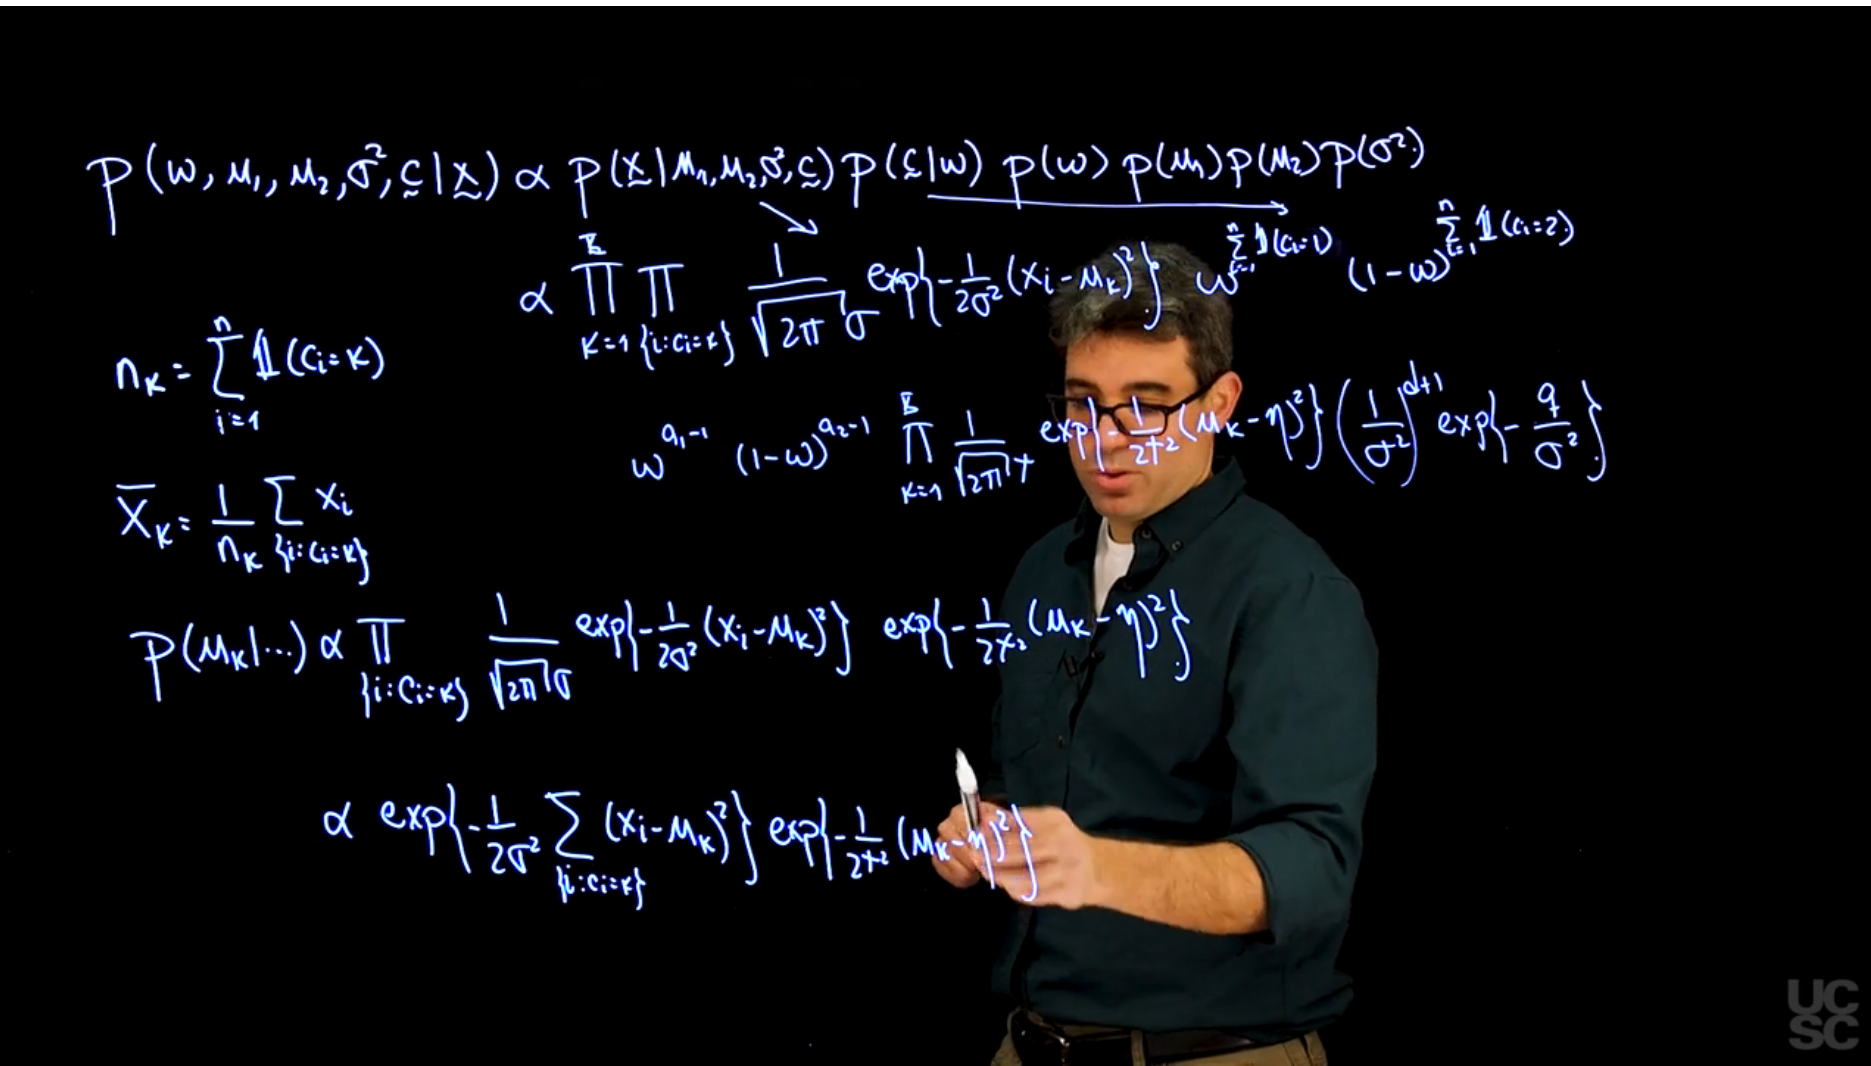 p(ω, μ₁, μ₂, σ², c̰ | x̰) ∝ p(x̰ | μ₁, μ₂, σ², c̰) p(c̰ | ω) p(ω) p(μ₁) p(μ₂) p(σ²)
∝ ∏_{k=1}^{K} ∏_{\{i:cᵢ=k\}} 1/(√(2π) σ) exp{-1/(2σ²) (xᵢ - μ_k)²} ω^{∑_{i=1}^{n} 𝟙(cᵢ=1)} (1-ω)^{∑_{i=1}^{n} 𝟙(cᵢ=2)}
n_k = ∑_{i=1}^{n} 𝟙(cᵢ=k)
ω^{a₁-1} (1-ω)^{a₂-1} ∏_{k=1}^{K} 1/(√(2π) τ) exp{-1/(2τ²) (μ_k - η)²} (1/σ²)^{d+1} exp{-q/σ²}
x̄_k = 1/n_k ∑_{\{i:cᵢ=k\}} xᵢ
p(μ_k | ···) ∝ ∏_{\{i:cᵢ=k\}} 1/(√(2π) σ) exp{-1/(2σ²) (xᵢ - μ_k)²} exp{-1/(2τ²) (μ_k - η)²}
∝ exp{-1/(2σ²) ∑_{\{i:cᵢ=k\}} (xᵢ - μ_k)²} exp{-1/(2τ²) (μ_k - η)²}
UC
SC